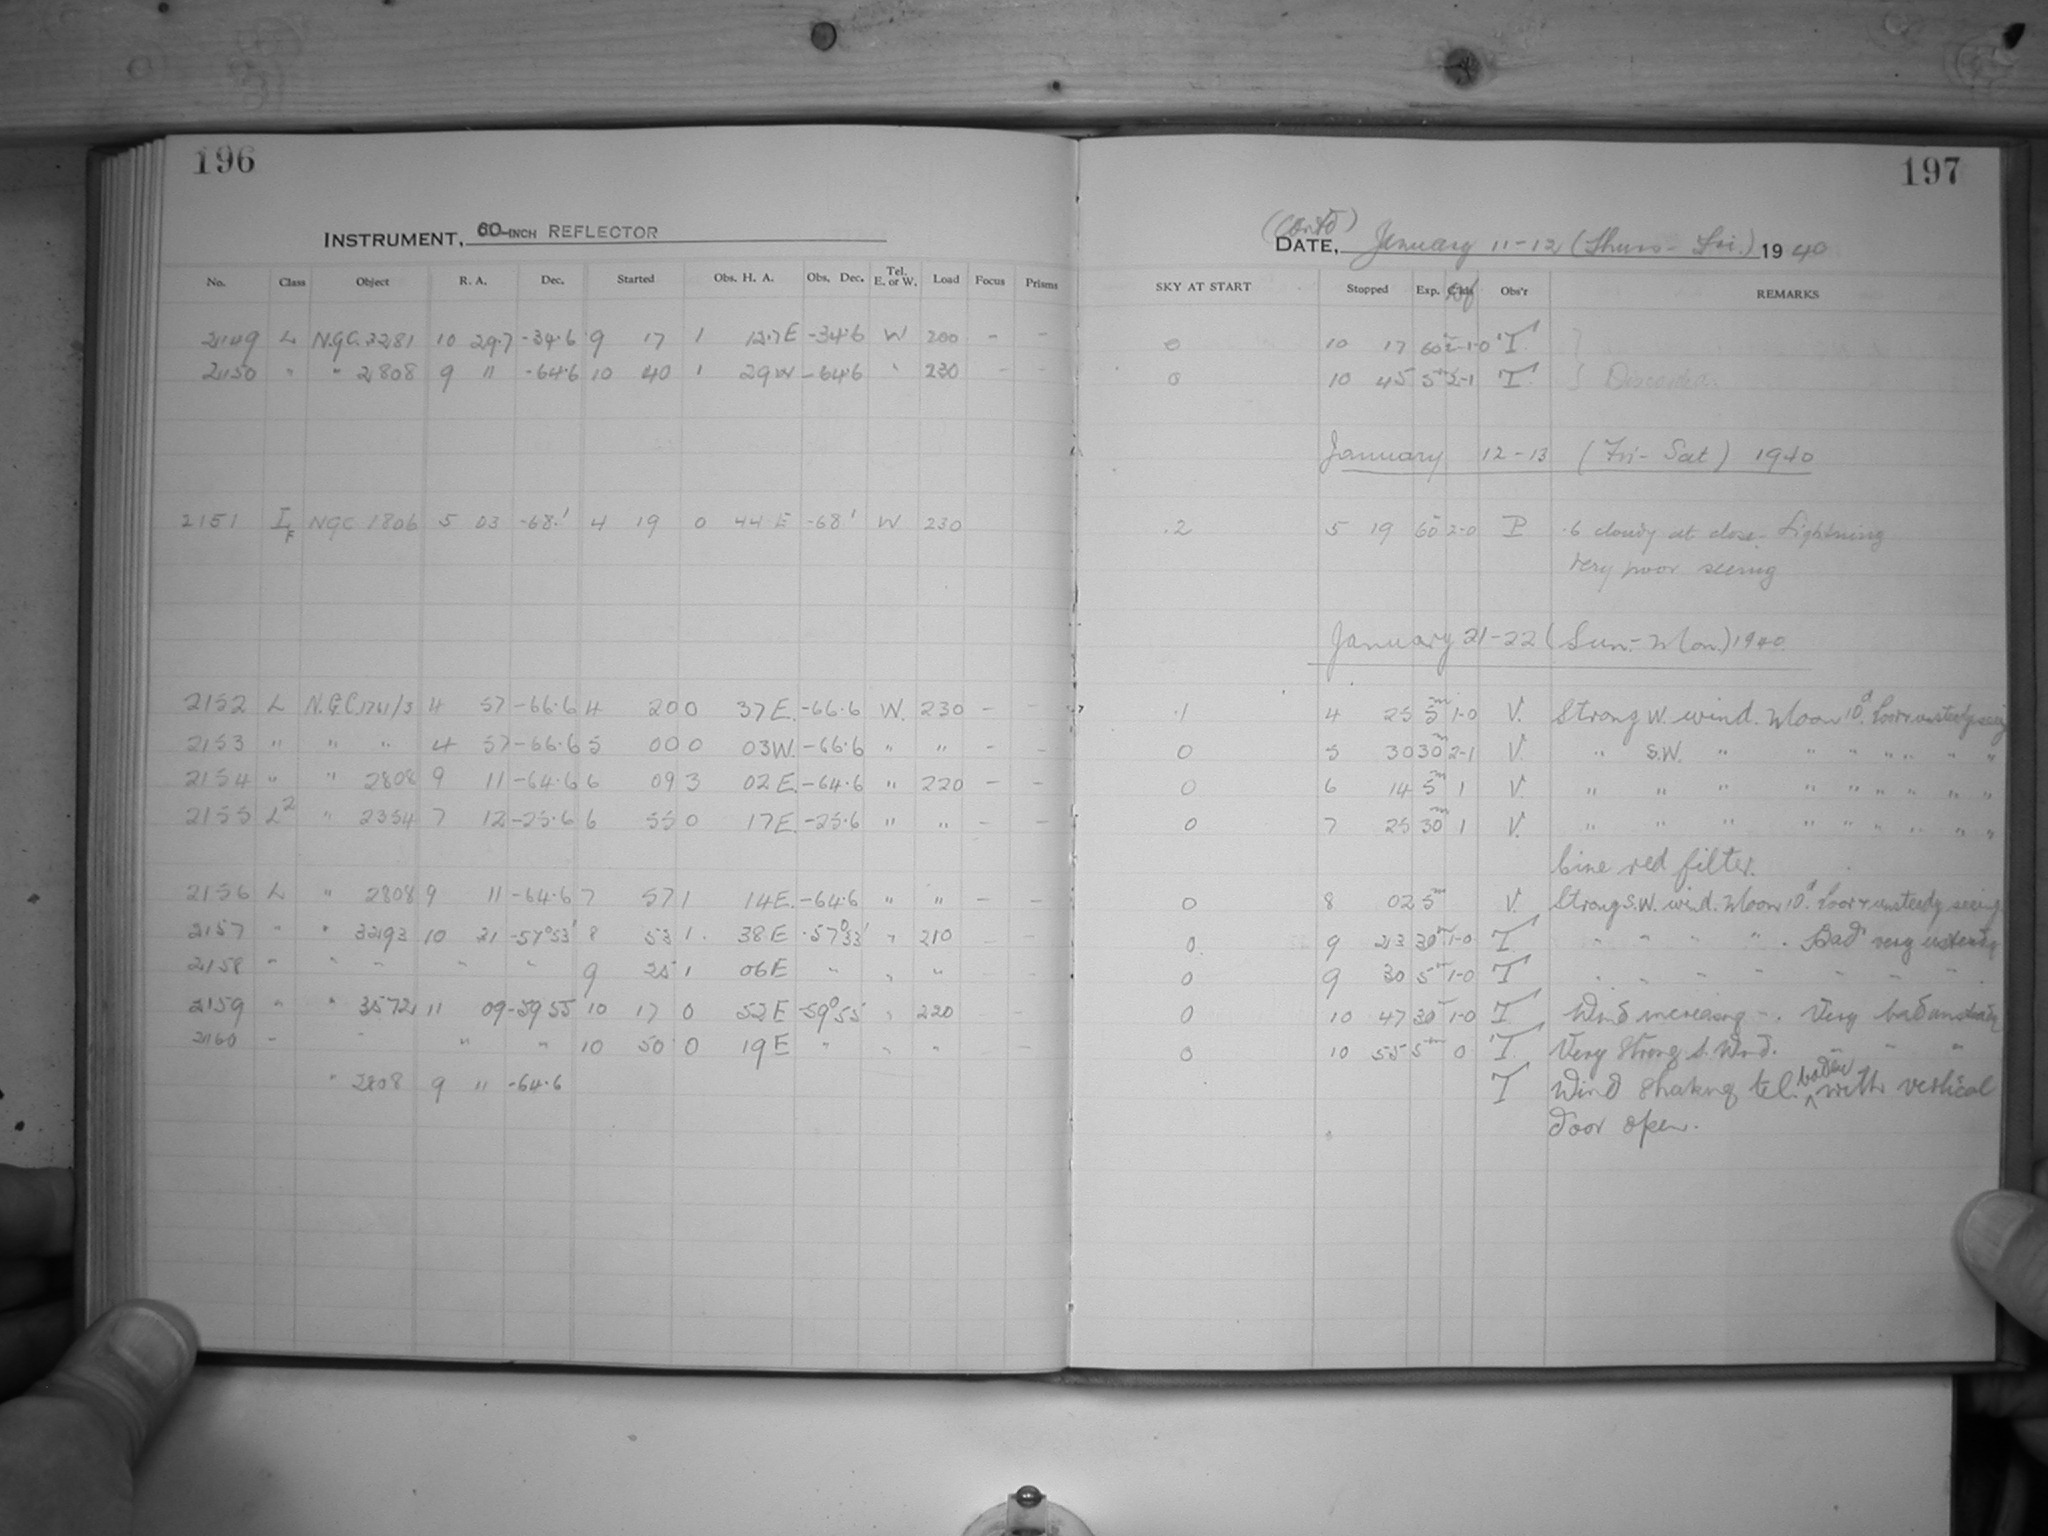 196
197
INSTRUMENT, 60-INCH REFLECTOR
(Contd)
DATE, January 11-12 (Thurs-Fri.) 1940
No. Class Object R. A. Dec. Started Obs. H. A. Obs. Dec. Tel. E. or W. Load Focus Prisms SKY AT START Stopped Exp. Obs'r REMARKS
2149 L N.G.C. 3281 10 29.7 -34.6 9 17 1 12.7E -34.6 W 200 - - 0 10 17 60 2-1-0 T
2150 " " 2808 9 11 -64.6 10 40 1 29W -64.6 " 230 - - 0 10 45 5m 2-1 T Discarded
January 12-13 (Fri-Sat) 1940
2151 IF NGC 1806 5 03 -68.1 4 19 0 44E -68.1 W 230 .2 5 19 60 2-0 P .6 cloudy at close. Lightning
Very poor seeing
January 21-22 (Sun.-Mon.) 1940
2152 L N.G.C. 1761/3 4 57 -66.6 4 20 0 37E. -66.6 W. 230 - - .1 4 25 5m 1-0 V. Strong W. wind. Moon 10d. Poor & unsteady seeing
2153 " " " 4 57 -66.6 5 00 0 03W. -66.6 " " - - 0 5 30 30m 2-1 V. " S.W. " " " " " " "
2154 " " 2808 9 11 -64.6 6 09 3 02E. -64.6 " 220 - - 0 6 14 5m 1 V. " " " " " " " " "
2155 L2 " 2354 7 12 -25.6 6 55 0 17E. -25.6 " " - - 0 7 25 30m 1 V. " " " " " " " " "
Cine red filter.
2156 L " 2808 9 11 -64.6 7 57 1 14E. -64.6 " " - - 0 8 02 5m V. Strong S.W. wind. Moon 10d. Poor & unsteady seeing
2157 " " 3293 10 31 -57°53' 8 53 1 38E -57°53' " 210 - - 0 9 23 30m 1-0 T " " " " . Bad very unsteady
2158 " " " " " 9 25 1 06E " " " 0 9 30 5m 1-0 T " " " " " " "
2159 " " 3572 11 09 -59 55 10 17 0 52E -59°55' " 220 - - 0 10 47 30m 1-0 T Wind increasing -. Very bad unsteady
2160 " " " " 10 50 0 19E " " " - - 0 10 55 5m 0 T. Very strong S. Wind. " " "
" 2808 9 11 -64.6 T Wind shaking tel. with vertical
door open.